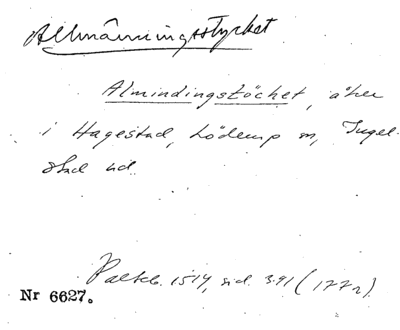 Allmänningsstycket
Almindingstöchet, åker
i Hagestad, Löderup sn, Ingel-
stad hd.
Paltsb. 1514, sid. 391 (177r).
Nr 6627.